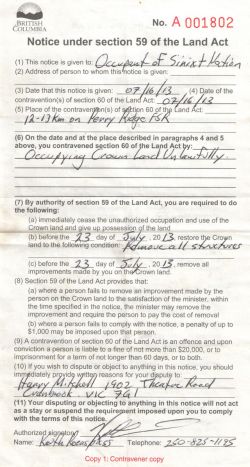 BRITISH
COLUMBIA
No. A 001802
Notice under section 59 of the Land Act
(1) This notice is given to: Occupant of Sinixt Nation
(2) Address of person to whom this notice is given:
(3) Date that this notice is given: 07/16/13 (4) Date of the
contravention(s) of section 60 of the Land Act: 07/16/13
(5) Place of the contravention(s) of section 60 of the Land Act:
12-13 Km on Perry Ridge FSR
(6) On the date and at the place described in paragraphs 4 and 5
above, you contravened section 60 of the Land Act by:
Occupying Crown Land Unlawfully.
(7) By authority of section 59 of the Land Act, you are required to do
the following:
(a) immediately cease the unauthorized occupation and use of the
Crown land and give up possession of the land
(b) before the 23 day of July, 2013 restore the Crown
land to the following condition: Remove all structures
(c) before the 23 day of July, 2013, remove all
improvements made by you on the Crown land.
(8) Section 59 of the Land Act provides that:
(a) where a person fails to remove an improvement made by the
person on the Crown land to the satisfaction of the minister, within
the time specified in the notice, the minister may remove the
improvement and require the person to pay the cost of removal
(b) where a person fails to comply with the notice, a penalty of up to
$1,000 may be imposed upon that person.
(9) A contravention of section 60 of the Land Act is an offence and upon
conviction a person is liable to a fine of not more than $20,000, or to
imprisonment for a term of not longer than 60 days, or to both.
(10) If you wish to dispute or object to anything in this notice, you should
immediately provide written reasons for your dispute to:
Henry Mitchell 1902 Theatre Road
Cranbrook V1C 7G1
(11) Your disputing or objecting to anything in this notice will not act
as a stay or suspend the requirement imposed upon you to comply
with the terms of this notice.
Authorized signatory
Name: Keith Telephone: 250-825-1195
Copy 1: Contravener copy